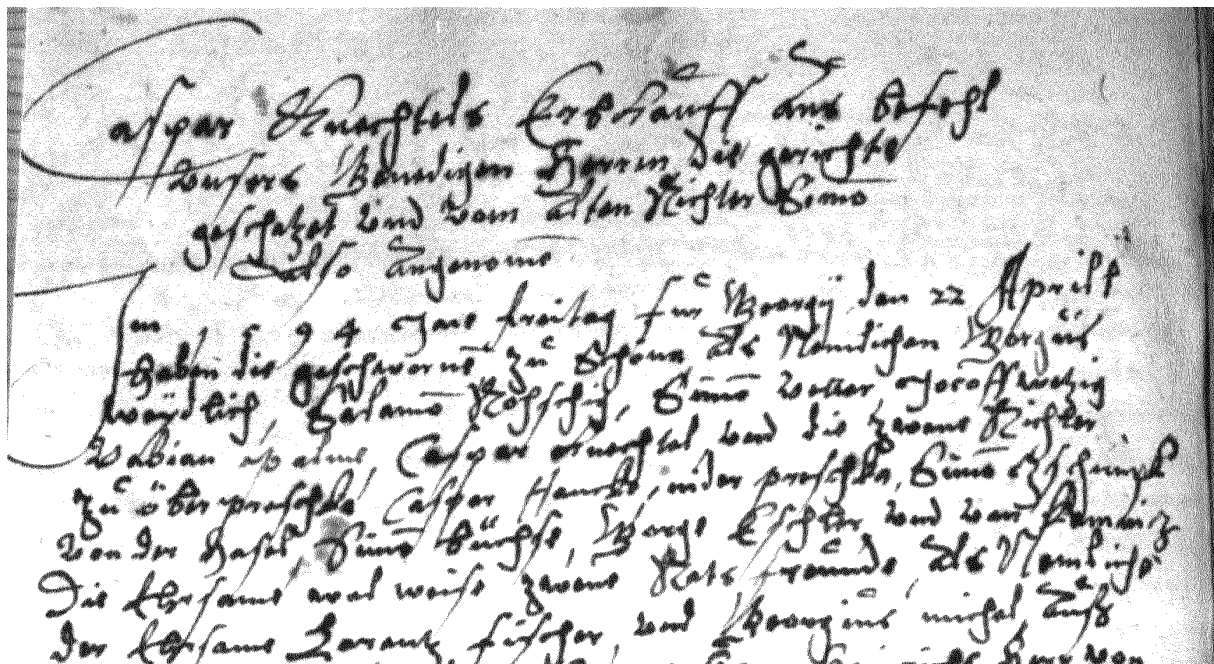 Caspar Knechtels Erbkauff aus befehl
unsers Genedigen Herrn die gerichte
geschatzet und vom alten Richter Simō
Also Angenomē
Im 1594 Jare freitag fur Georgij den 22 Aprill
Haben die geschwornē zu Schona als Nemlichen Gorgius
weydlich, Salamō Röhschich, Simō Jacoff
Fabian Caspar Knechtel und die zwene Richter
zu ober preschke Caspar Hancke, nider preschke, Simō
von der Hasel Simō büchse, Gorge Eschler und von Kemnicz
Die Ehrsame wol weise zwene Rats freunde als Nemliche
der Ehrsame Lorantz fischer, und Georgius michel